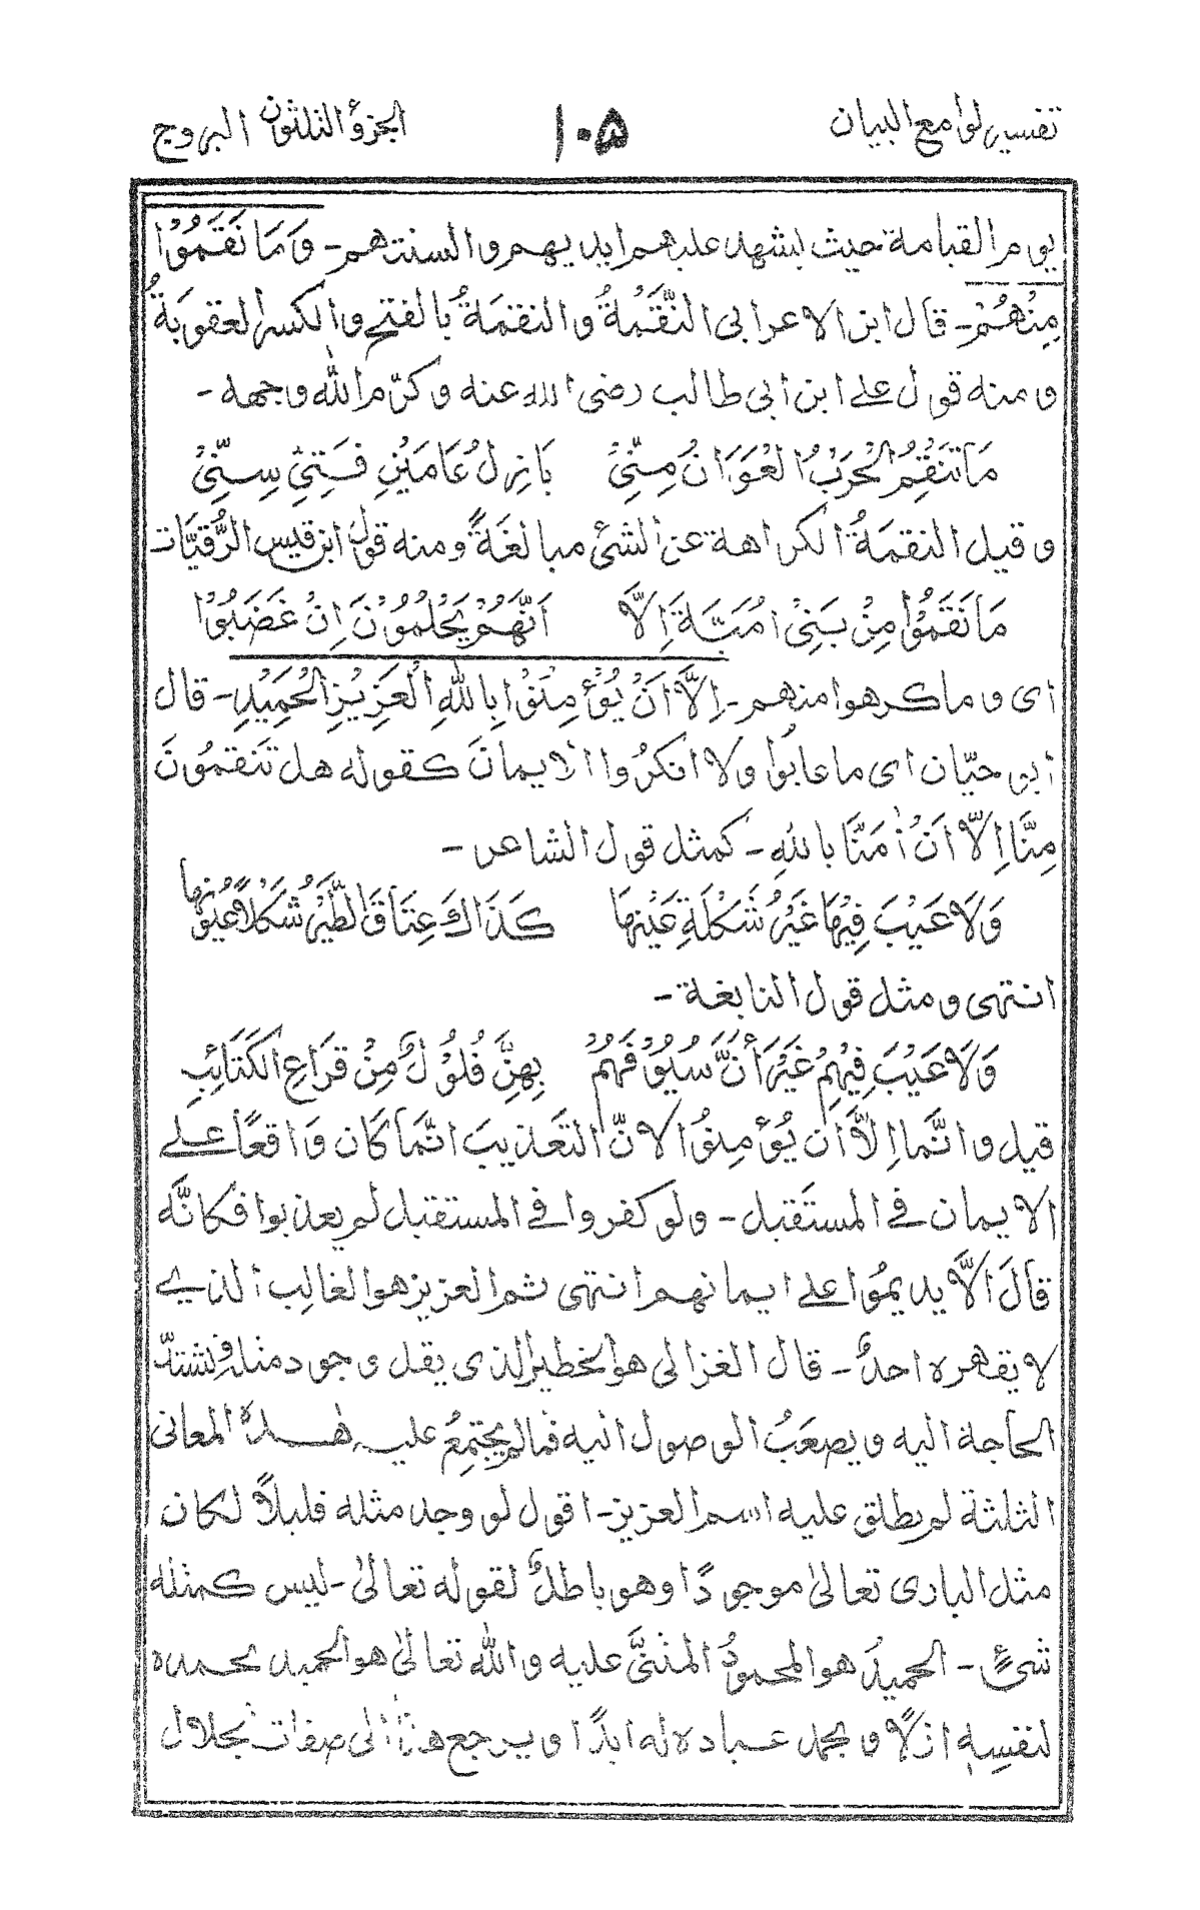 تفسير لوامع البيان ١٠٥ الجزؤ الثلثون البروج
يوم القيامة حيث يشهد عليهم ايديهم والسنتهم - وَمَا نَقَمُوْا
مِنْهُمْ - قال ابن الاعرابى النَّقَمَةُ والنقمَةُ بالفتح والكسر العقوبَةُ
ومنه قول على ابن ابى طالب رضى الله عنه وكرّم الله وجهه -
مَا تَنْقِمُ الْحَرْبُ الْعَوَانُ مِنِّيْ بَازِلُ عَامَيْنِ فَتِيْ سِنِّيْ
وقيل النقمَةُ الكراهة عن الشئ مبالغَةً ومنه قول ابن قيس الرُّقيَّات
مَا نَقَمُوْا مِنْ بَنِيْ اُمَيَّةَ اِلَّا اَنَّهُمْ يَحْلُمُوْنَ اِنْ غَضَبُوْا
اى وما كرهوا منهم - اِلَّا اَنْ يُؤْمِنُوْا بِاللهِ الْعَزِيْزِ الْحَمِيْدِ - قال
ابو حيّان اى ما عابُوا ولا انكرُوا الايمانَ كقوله هل تَنقمُونَ
مِنَّا اِلَّا اَنْ اٰمَنَّا باللهِ - كمثل قول الشاعر -
وَلَا عَيْبَ فِيْهَا غَيْرُ شَكْلَةِ عَيْنِهَا كَذَاكَ عِتَاقُ الطَّيْرِ شَكْلًا عُيُوْنُهَا
انتهى ومثل قول النابغة -
وَلَا عَيْبَ فِيْهِمْ غَيْرَ أَنَّ سُيُوْفَهُمْ بِهِنَّ فُلُوْلٌ مِنْ قِرَاعِ الْكَتَائِبِ
قيل وانّما اِلَّا اَن يُؤمِنوُا لانّ التعَذيبَ انّما كَان وَاقعًا على
الايمان فى المستَقبل - ولو كفروا فى المستقبل لم يعذبوا فكانّه
قالَ الَّا يديمُوا على ايمانهم انتهى ثم العزيز هو الغالب الذى
لا يقهره احدٌ - قال الغزالى هو الخطير الذى يقل وجود مثله وتشتدّ
الحاجة اليه ويصعَبُ الوصول اليه فما لم يجتمِعُ عليه هٰذه المعانى
الثلثة لم يطلق عليه اسم العزيز - اقول لو وجد مثله قليلًا لكان
مثل البارى تعالىٰ موجودًا وهو باطلٌ لقوله تعالىٰ - ليس كمثله
شئٌ - الحميدُ هو المحمودُ المثنىّ عليه والله تعالىٰ هو الحميد بحمده
لنفسِه ازلًا وبحمد عباده له ابدًا ويرجع هذا الى صفات الجلال